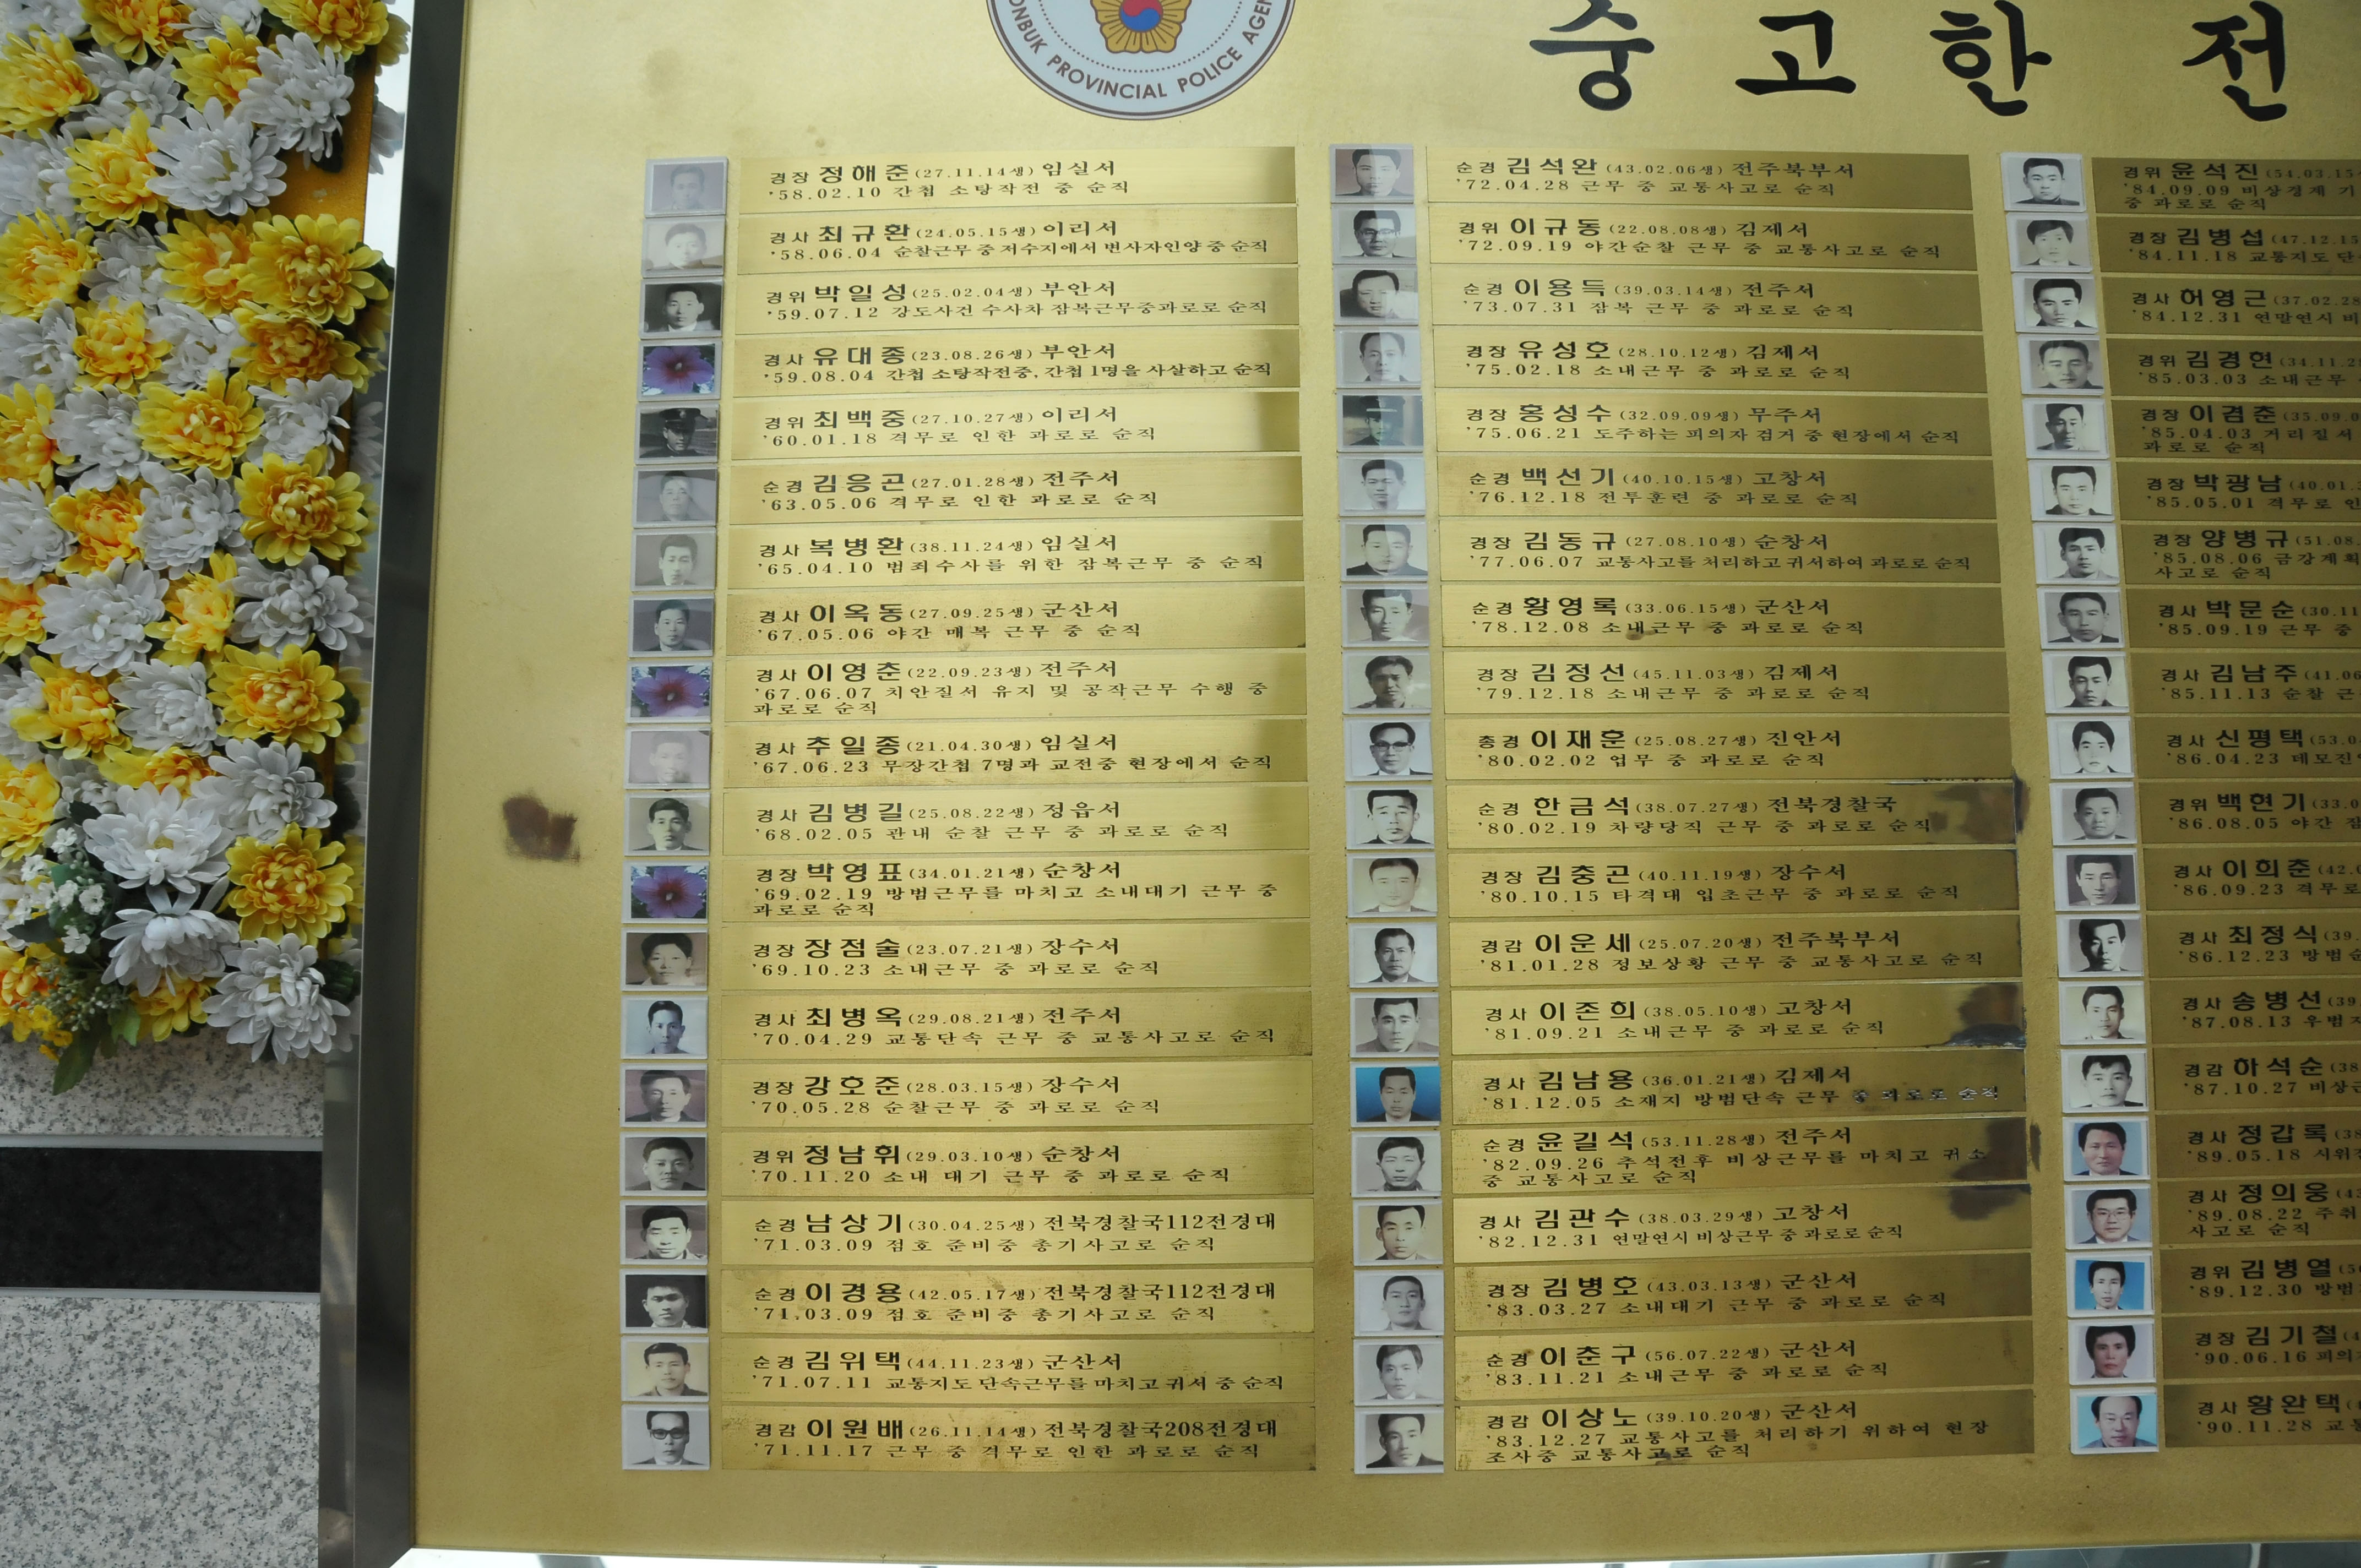 ONBUK PROVINCIAL POLICE AGEN
숭고한 전
경장 정해준(27.11.14생) 임실서
'58.02.10 간첩 소탕작전 중 순직
경사 최규환(24.05.15생) 이리서
'58.06.04 순찰근무 중 저수지에서 변사자인양 중 순직
경위 박일성(25.02.04생) 부안서
'59.07.12 강도사건 수사차 잠복근무중과로로 순직
경사 유대종(23.08.26생) 부안서
'59.08.04 간첩 소탕작전중, 간첩 1명을 사살하고 순직
경위 최백중(27.10.27생) 이리서
'60.01.18 격무로 인한 과로로 순직
순경 김응곤(27.01.28생) 전주서
'63.05.06 격무로 인한 과로로 순직
경사 복병환(38.11.24생) 임실서
'65.04.10 범죄수사를 위한 잠복근무 중 순직
경사 이옥동(27.09.25생) 군산서
'67.05.06 야간 매복 근무 중 순직
경사 이영춘(22.09.23생) 전주서
'67.06.07 치안질서 유지 및 공작근무 수행 중
과로로 순직
경사 추일종(21.04.30생) 임실서
'67.06.23 무장간첩 7명과 교전중 현장에서 순직
경사 김병길(25.08.22생) 정읍서
'68.02.05 관내 순찰 근무 중 과로로 순직
경장 박영표(34.01.21생) 순창서
'69.02.19 방범근무를 마치고 소내대기 근무 중
과로로 순직
경장 장점술(23.07.21생) 장수서
'69.10.23 소내근무 중 과로로 순직
경사 최병옥(29.08.21생) 전주서
'70.04.29 교통단속 근무 중 교통사고로 순직
경장 강호준(28.03.15생) 장수서
'70.05.28 순찰근무 중 과로로 순직
경위 정남휘(29.03.10생) 순창서
'70.11.20 소내 대기 근무 중 과로로 순직
순경 남상기(30.04.25생) 전북경찰국112전경대
'71.03.09 점호 준비중 총기사고로 순직
순경 이경용(42.05.17생) 전북경찰국112전경대
'71.03.09 점호 준비중 총기사고로 순직
순경 김위택(44.11.23생) 군산서
'71.07.11 교통지도 단속근무를 마치고 귀서 중 순직
경감 이원배(26.11.14생) 전북경찰국208전경대
'71.11.17 근무 중 격무로 인한 과로로 순직
순경 김석완(43.02.06생) 전주북부서
'72.04.28 근무 중 교통사고로 순직
경위 이규동(22.08.08생) 김제서
'72.09.19 야간순찰 근무 중 교통사고로 순직
순경 이용득(39.03.14생) 전주서
'73.07.31 잠복 근무 중 과로로 순직
경장 유성호(28.10.12생) 김제서
'75.02.18 소내근무 중 과로로 순직
경장 홍성수(32.09.09생) 무주서
'75.06.21 도주하는 피의자 검거 중 현장에서 순직
순경 백선기(40.10.15생) 고창서
'76.12.18 전투훈련 중 과로로 순직
경장 김동규(27.08.10생) 순창서
'77.06.07 교통사고를 처리하고 귀서하여 과로로 순직
순경 황영록(33.06.15생) 군산서
'78.12.08 소내근무 중 과로로 순직
경장 김정선(45.11.03생) 김제서
'79.12.18 소내근무 중 과로로 순직
총경 이재훈(25.08.27생) 진안서
'80.02.02 업무 중 과로로 순직
순경 한금석(38.07.27생) 전북경찰국
'80.02.19 차량당직 근무 중 과로로 순직
경장 김충곤(40.11.19생) 장수서
'80.10.15 타격대 입초근무 중 과로로 순직
경감 이운세(25.07.20생) 전주북부서
'81.01.28 정보상황 근무 중 교통사고로 순직
경사 이존희(38.05.10생) 고창서
'81.09.21 소내근무 중 과로로 순직
경사 김남용(36.01.21생) 김제서
'81.12.05 소재지 방범단속 근무 중 과로로 순직
순경 윤길석(53.11.28생) 전주서
'82.09.26 추석전후 비상근무를 마치고 귀소
중 교통사고로 순직
경사 김관수(38.03.29생) 고창서
'82.12.31 연말연시 비상근무 중 과로로 순직
경장 김병호(43.03.13생) 군산서
'83.03.27 소내대기 근무 중 과로로 순직
순경 이춘구(56.07.22생) 군산서
'83.11.21 소내근무 중 과로로 순직
경감 이상노(39.10.20생) 군산서
'83.12.27 교통사고를 처리하기 위하여 현장
조사중 교통사고로 순직
경위 윤석진(54.03.15
'84.09.09 비상경계 기
중 과로로 순직
경장 김병섭(47.12.15
'84.11.18 교통지도 단
경사 허영근(37.02.28
'84.12.31 연말연시 비
경위 김경현(34.11.2
'85.03.03 소내근무
경장 이겸춘(35.09.0
'85.04.03 거리질서
과로로 순직
경장 박광남(40.01.
'85.05.01 격무로 인
경장 양병규(51.08.
'85.08.06 금강계획
사고로 순직
경사 박문순(30.11
'85.09.19 근무 중
경사 김남주(41.06
'85.11.13 순찰 근
경사 신평택(53.0
'86.04.23 데모진
경위 백현기(33.0
'86.08.05 야간 잠
경사 이희춘(42.0
'86.09.23 격무로
경사 최정식(39.
'86.12.23 방범순
경사 송병선(39
'87.08.13 우범지
경감 하석순(38
'87.10.27 비상근
경사 정갑록(38
'89.05.18 시위진
경사 정의웅(43
'89.08.22 주취
사고로 순직
경위 김병열(5
'89.12.30 방범
경장 김기철(4
'90.06.16 피의자
경사 황완택(
'90.11.28 교통